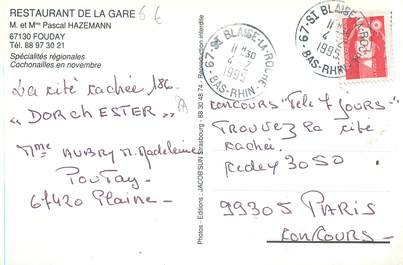 RESTAURANT DE LA GARE 6 €
M. et Mme Pascal HAZEMANN
67130 FOUDAY
Tél. 88 97 30 21
Spécialités régionales
Cochonailles en novembre
La cité cachée 186
« DORCHESTER »
Mme AUBRY M. Madeleine
Poutay -
67420 Plaine -
Photos - Editions : JACOB'SUN Strasbourg - 88 30 48 74 - Reproduction interdite
67-ST BLAISE-LA-ROCHE
11 H 30
4-2
1995
BAS-RHIN
67-ST BLAISE-LA-ROCHE
11 H 30
4-2
1995
BAS-RHIN
CONCOURS "Télé 7 JOURS -"
TROUVEZ la cité
cachée.
Cedex 3050
99305 PARIS
CONCOURS -